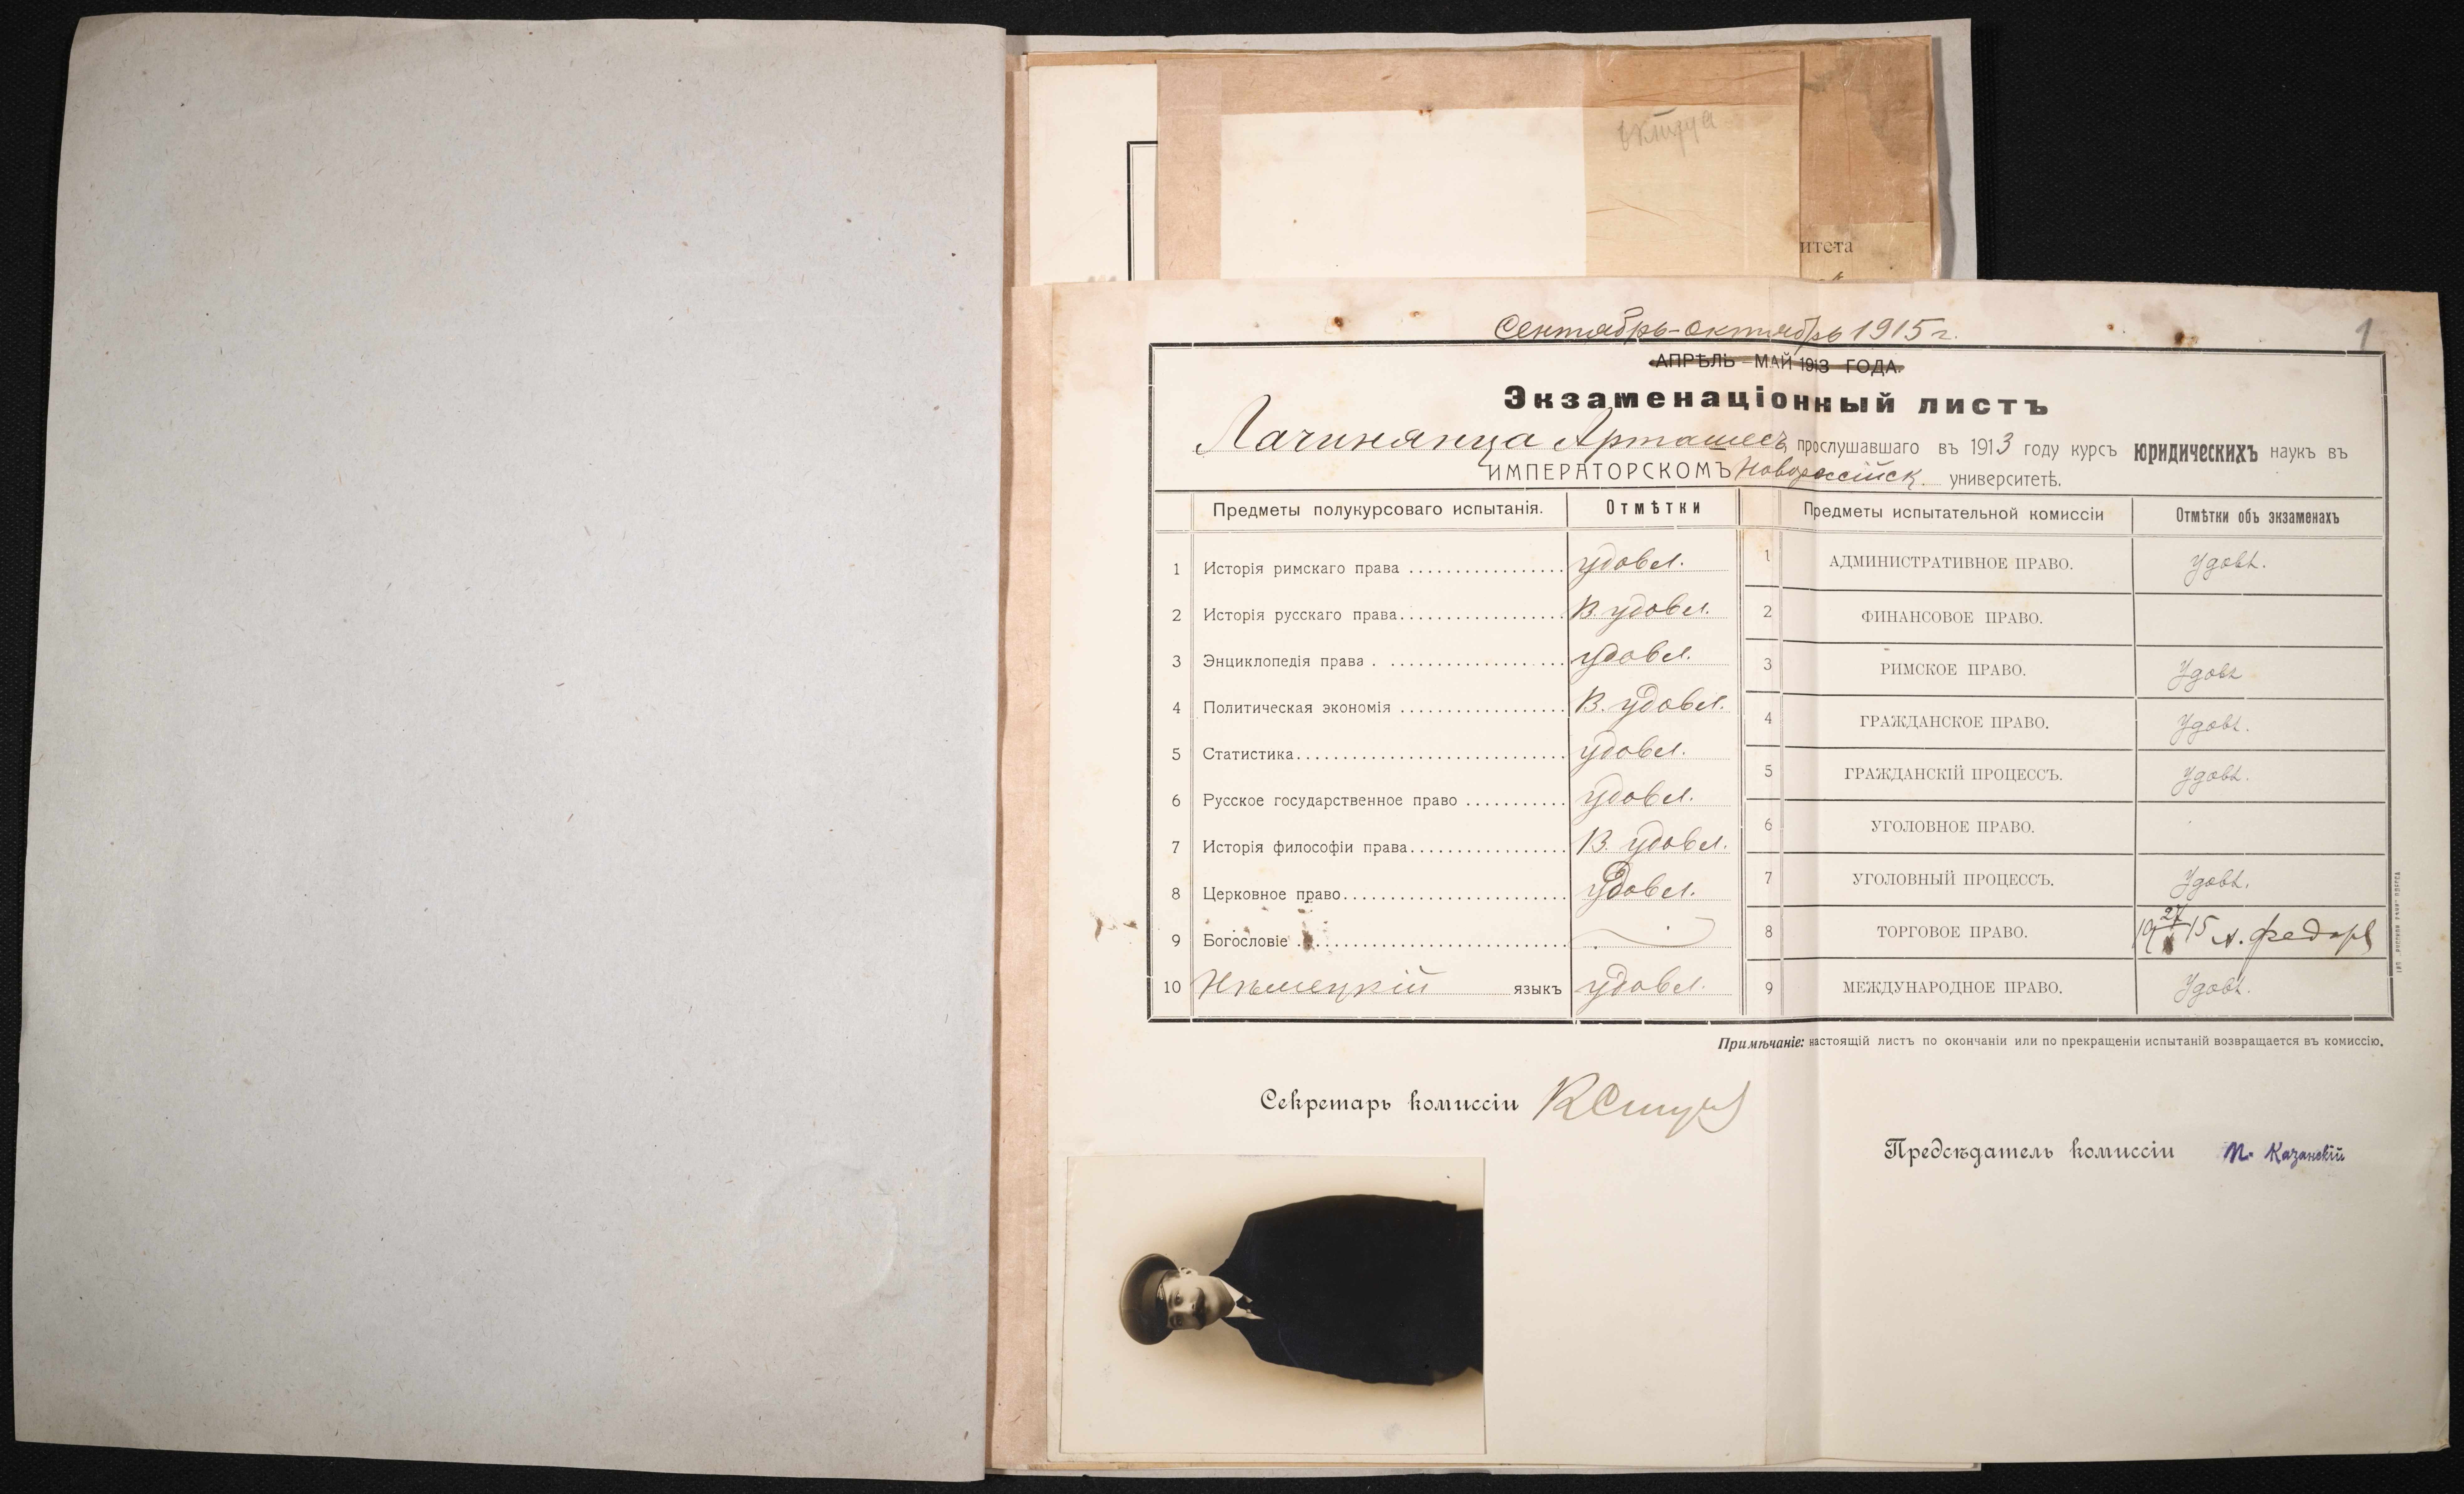 итета
1
Сентябрь-октябрь 1915 г.
АПРѢЛЬ—МАЙ 1913 ГОДА.
Экзаменаціонный листъ
Лачинянца Арташесъ прослушавшаго въ 1913 году курсъ юридическихъ наукъ въ
ИМПЕРАТОРСКОМЪ Новороссійск. университетѣ.
Предметы полукурсоваго испытанія. Отмѣтки Предметы испытательной комиссіи Отмѣтки объ экзаменахъ
1 Исторія римскаго права удовл. 1 АДМИНИСТРАТИВНОЕ ПРАВО. Удовл.
2 Исторія русскаго права В. удовл. 2 ФИНАНСОВОЕ ПРАВО.
3 Энциклопедія права удовл. 3 РИМСКОЕ ПРАВО. Удовл
4 Политическая экономія В. удовл. 4 ГРАЖДАНСКОЕ ПРАВО. Удовл.
5 Статистика удовл. 5 ГРАЖДАНСКІЙ ПРОЦЕССЪ. Удовл.
6 Русское государственное право удовл. 6 УГОЛОВНОЕ ПРАВО.
7 Исторія философіи права В. удовл. 7 УГОЛОВНЫЙ ПРОЦЕССЪ. Удовл.
8 Церковное право удовл. 8 ТОРГОВОЕ ПРАВО. 19 27 15 А. Федоровъ
9 Богословіе
10 Нѣмецкій языкъ удовл. 9 МЕЖДУНАРОДНОЕ ПРАВО. Удовл.
Примѣчаніе: настоящій листъ по окончаніи или по прекращеніи испытаній возвращается въ комиссію.
Секретарь комиссіи
Предсѣдатель комиссіи П. Казанскій